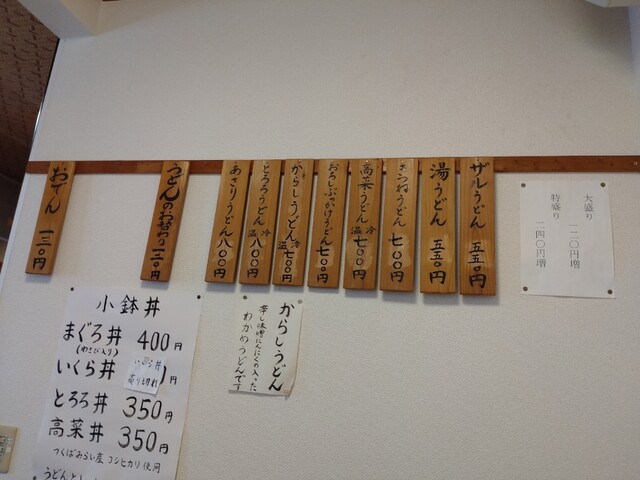 ザルうどん 五五〇円
湯うどん 五五〇円
きつねうどん 七〇〇円
高菜うどん 冷温 七〇〇円
おろしぶっかけうどん 七〇〇円
からしうどん 冷温 七〇〇円
とろろうどん 冷温 八〇〇円
あさりうどん 八〇〇円
うどんのお替わり 一二〇円
おでん 一三〇円
大盛り 一二〇円増
特盛り 二四〇円増
からしうどん
辛し味噌にんにくの入った
わかめうどんです
小鉢丼
まぐろ丼 400円
(わさび入り)
いくら丼 円
いくら丼
売り切れ
とろろ丼 350円
高菜丼 350円
つくばみらい産 コシヒカリ使用